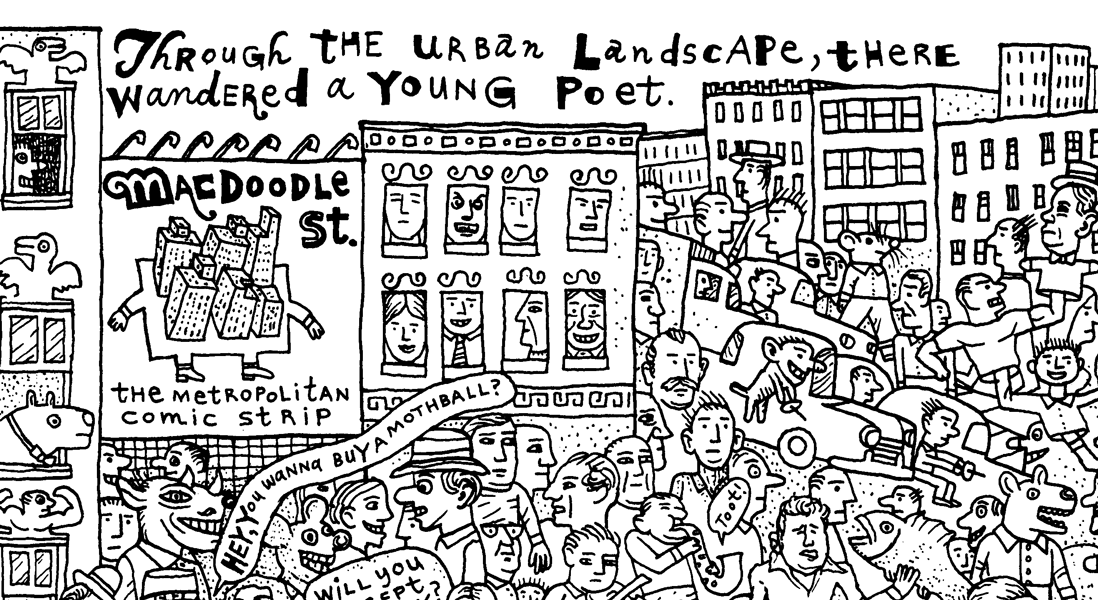 Through the urban Landscape, there
wandered a YOUNG Poet.
MACDOODLE
St.
the metropolitan
comic strip
HEY, You wanna BUY A MOTHBALL?
Toot
WILL YOU